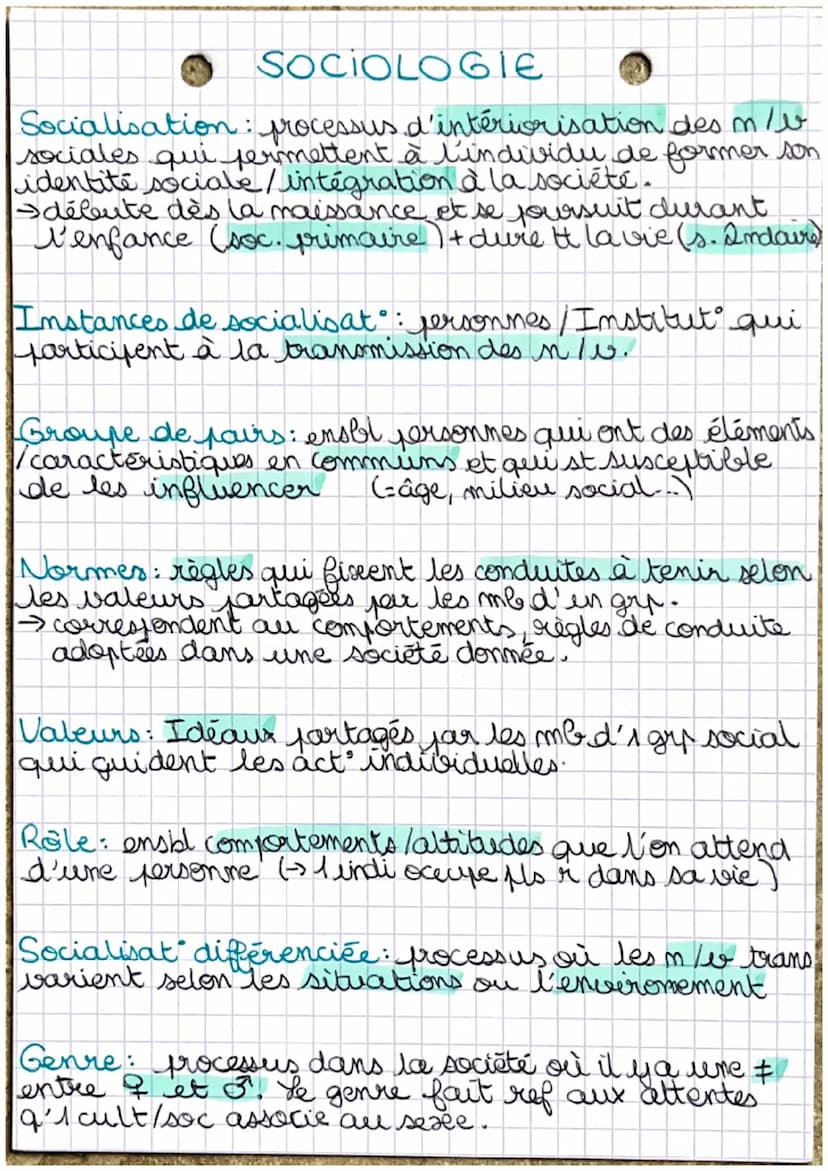 SOCIOLOGIE
Socialisation : processus d'intériorisation des n/v
sociales qui permettent à l'individu de former son
identité sociale / intégration à la société.
→ débute dès la naissance et se poursuit durant
l'enfance (soc. primaire) + dure tt la vie (s. 2ndaire)
Instances de socialisat° : personnes / Institut° qui
participent à la transmission des n/v.
Groupe de pairs : ensbl personnes qui ont des éléments
/ caractéristiques en communs et qui st susceptible
de les influencer (=âge, milieu social...)
Normes : règles qui fixent les conduites à tenir selon
les valeurs partagées par les mb d'un grp.
→ correspondent au comportements, règles de conduite
adoptées dans une société donnée.
Valeurs : Idéaux partagés par les mb d'1 grp social
qui guident les act° individuelles.
Rôle : ensbl comportements/attitudes que l'on attend
d'une personne (→ 1 indi occupe pls r dans sa vie)
Socialisat° différenciée : processus où les n/v trans
varient selon les situations ou l'environement
Genre : processus dans la société où il y a une ≠
entre ♀ et ♂. Le genre fait ref aux attentes
q'1 cult/soc associe au sexe.